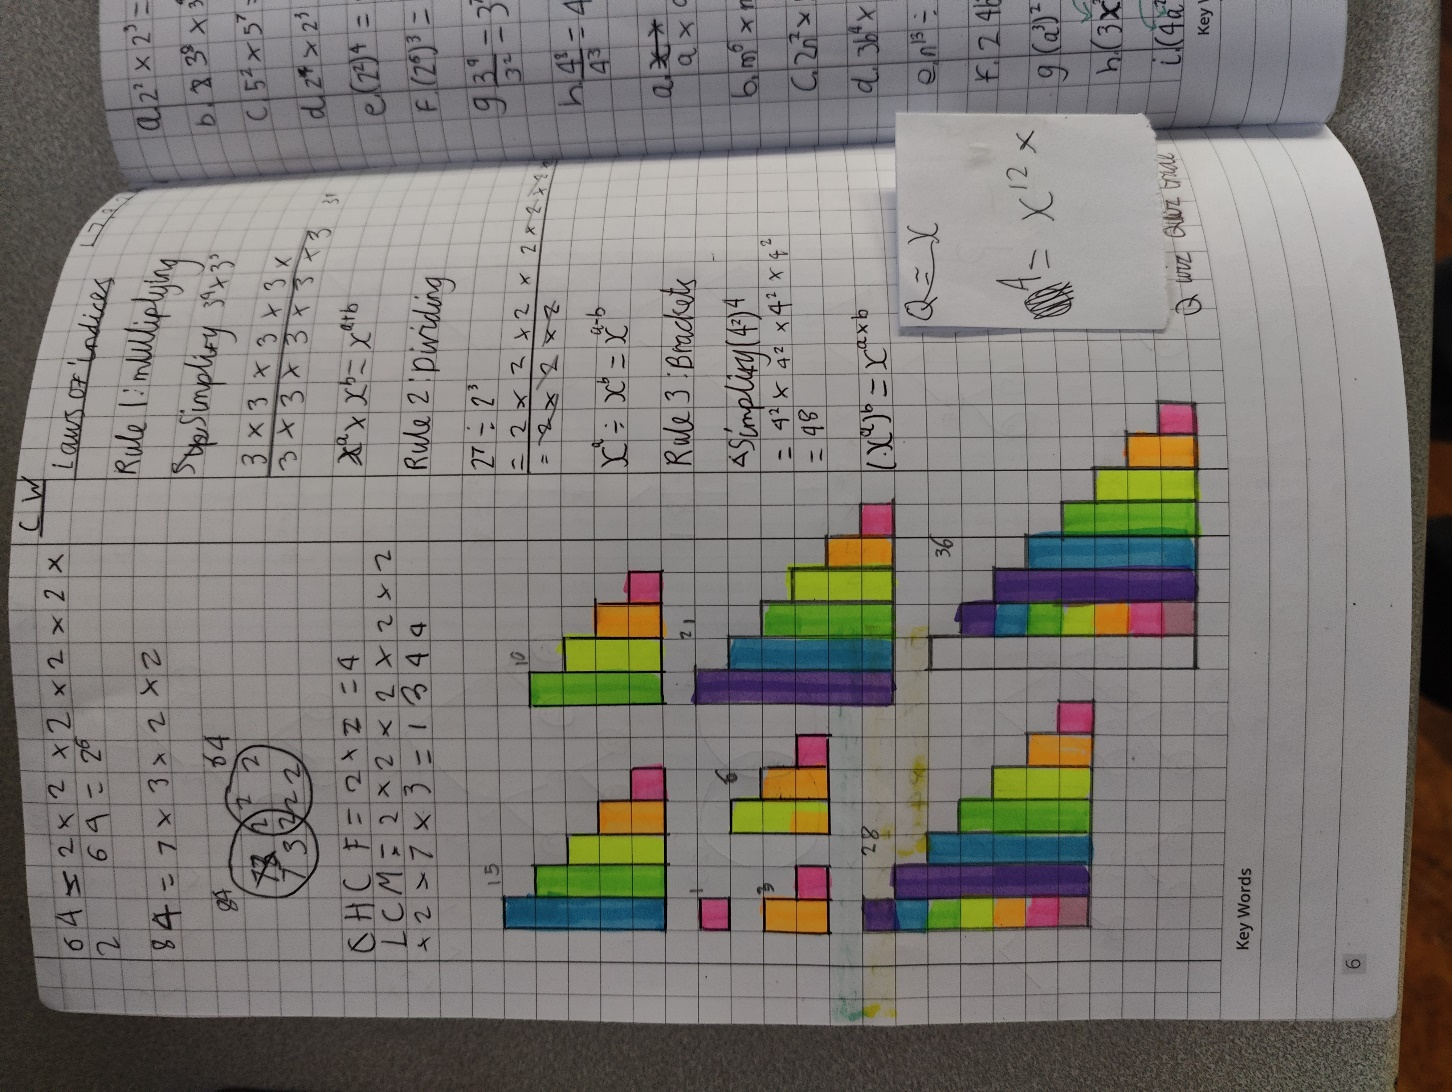 64 = 2 × 2 × 2 × 2 × 2 × 2 ×
2 64 = 2⁶
84 = 7 × 3 × 2 × 2
84
64
7 3
2 2
2 2
2 2
HCF = 2 × 2 = 4
LCM = 2 × 2 × 2 × 2 × 2 × 2
× 2 × 7 × 3 = 1344
15
10
1
3
6
21
28
36
CW
Laws of indices
Rule 1: multiplying
Simplify 3⁴ × 3³
3 × 3 × 3 × 3 × 3 ×
3 × 3 × 3 × 3 × 3 × 3
xᵃ × xᵇ = xᵃ⁺ᵇ
Rule 2: Dividing
2⁷ ÷ 2³
= 2 × 2 × 2 × 2 × 2 × 2 × 2
= 2 × 2 × 2
xᵃ ÷ xᵇ = xᵃ⁻ᵇ
Rule 3: Brackets
Simplify (4²)⁴
= 4² × 4² × 4² × 4²
= 48
(xᵃ)ᵇ = xᵃˣᵇ
Q = x
A = x¹² x
Key Words
6
a 2² × 2³ =
b. 3⁸ × 3
c. 5² × 5⁷ =
d. 2⁴ × 2³
e. (2²)⁴ =
f. (2⁶)³ =
g 3⁴ = 3
3²
h. 4⁸ = 4
4³
a.
a ×
b. m⁶ × m
c. 2n² ×
d. 3b⁴ ×
e. n¹⁵ ÷
f. 24b
g (a³)²
h. (3x
i. (4a²
Key